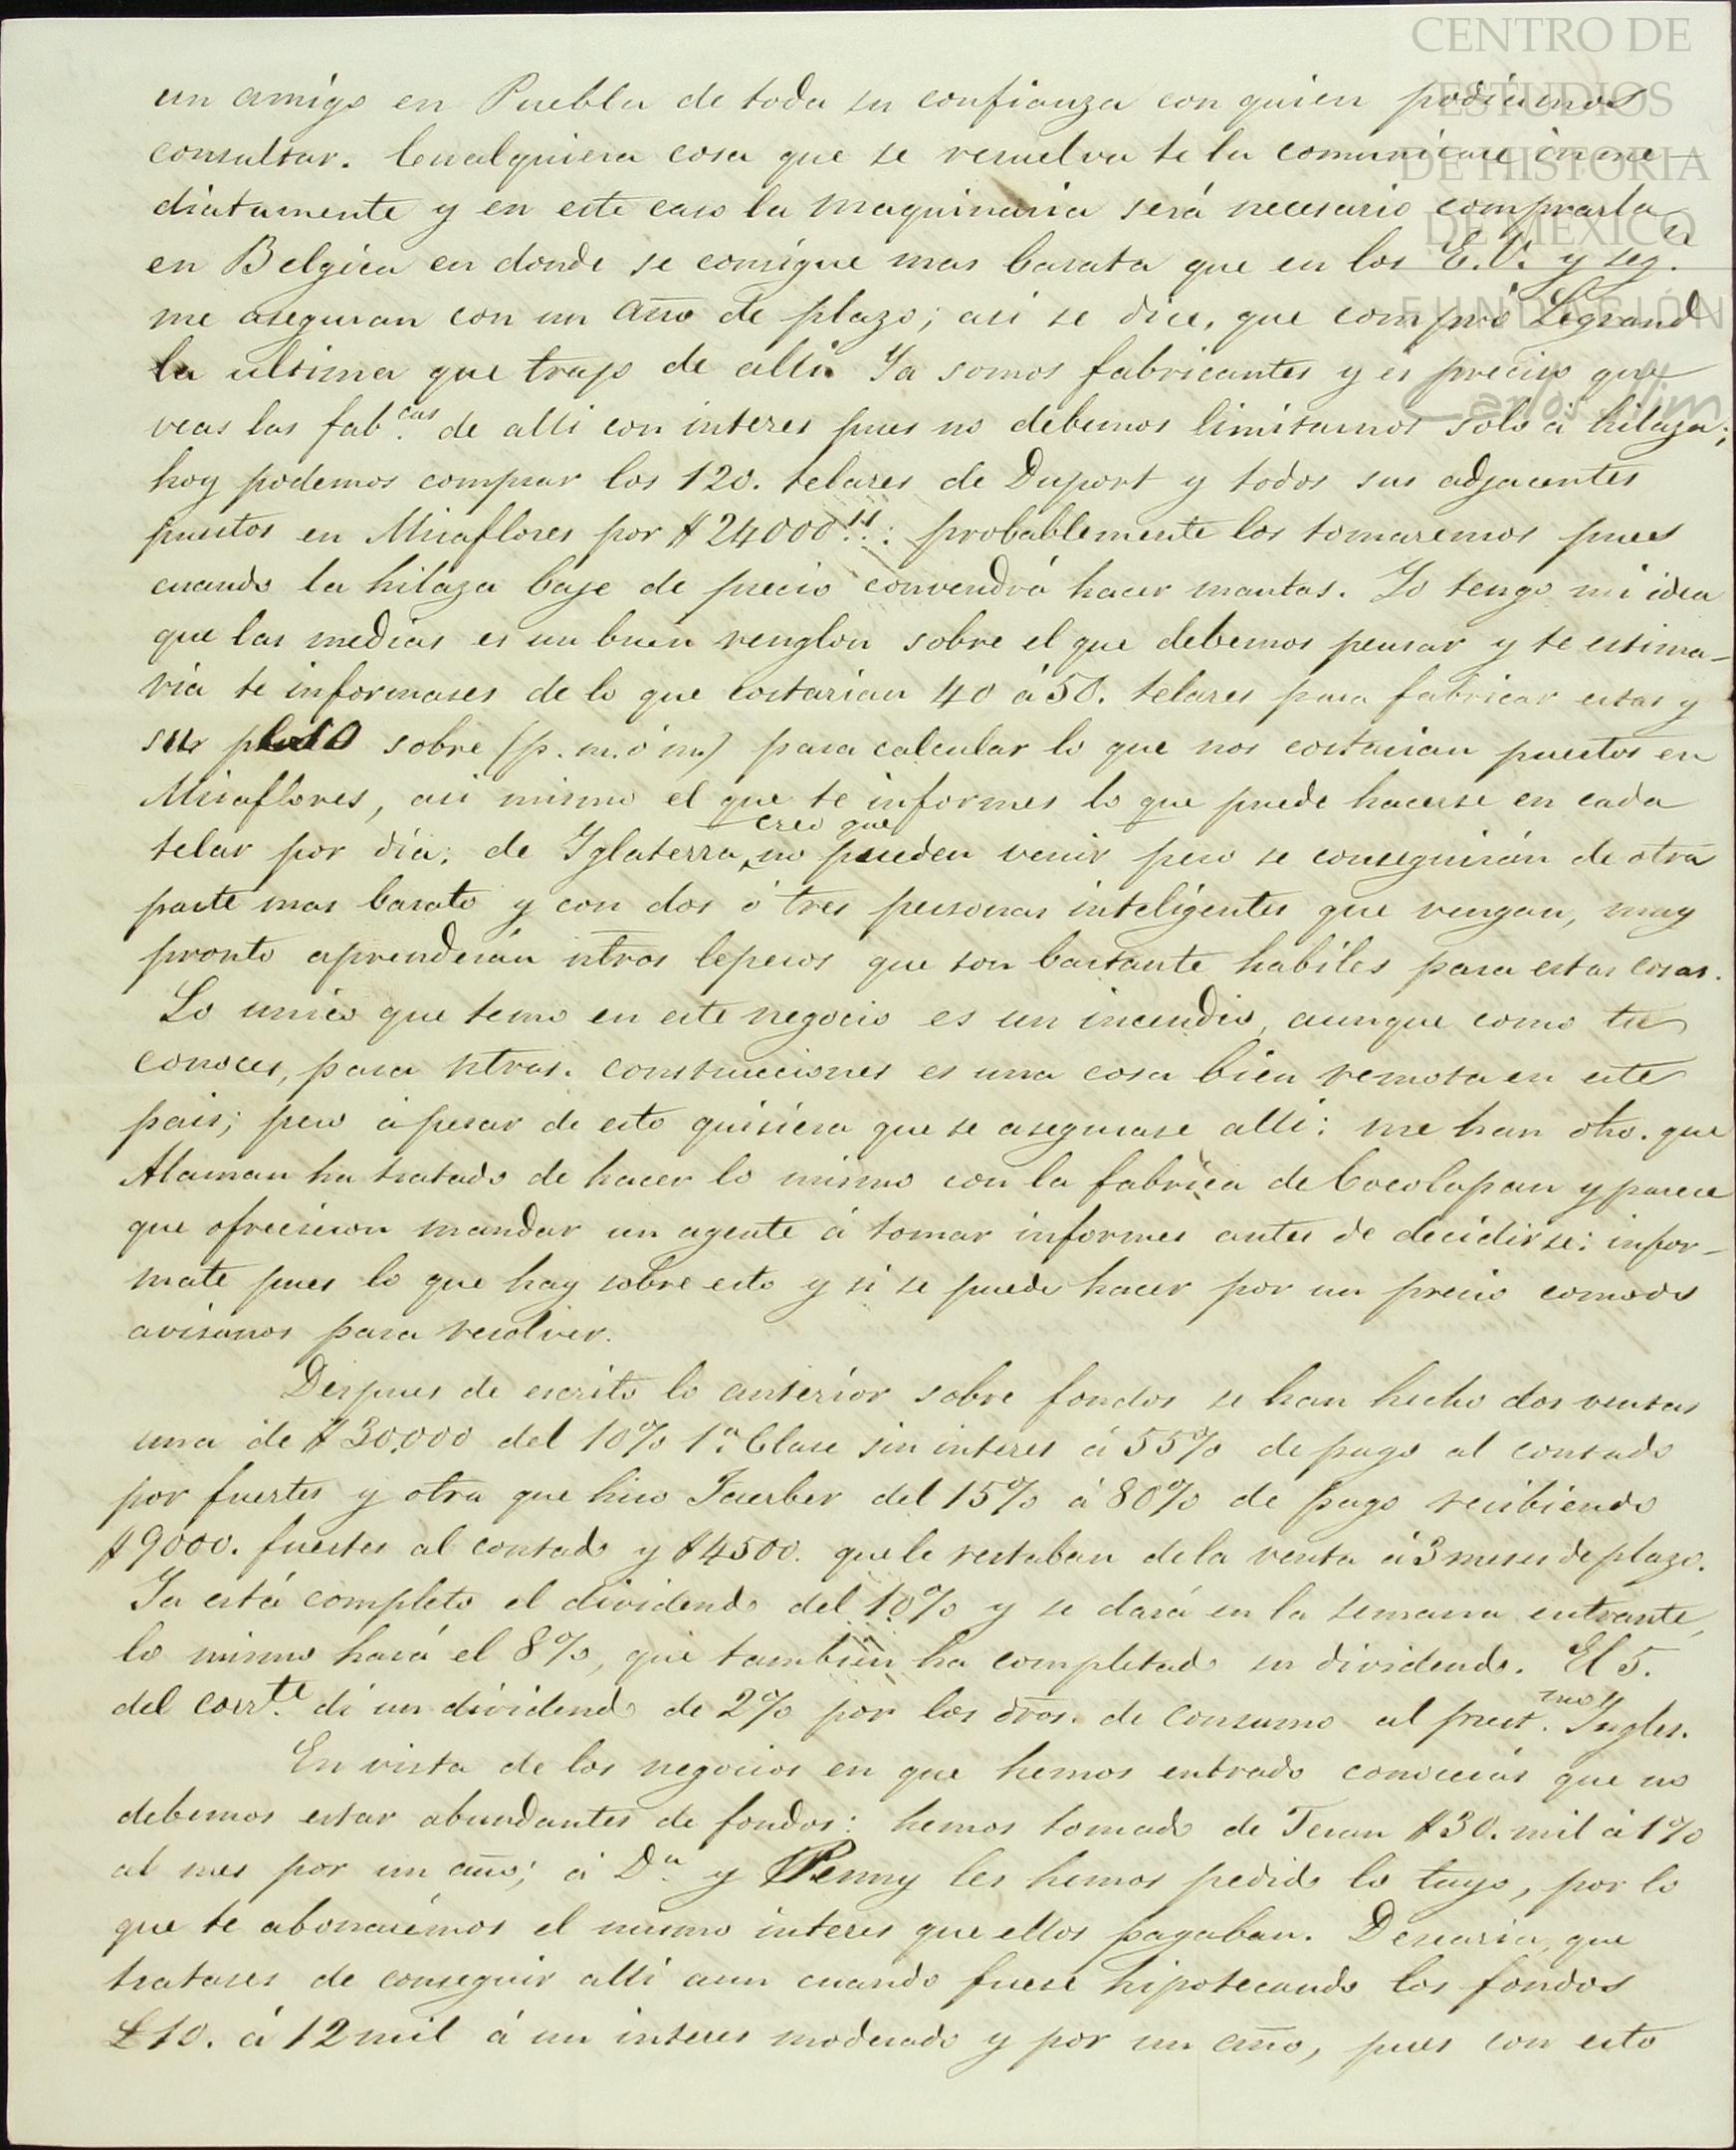 CENTRO DE
ESTUDIOS
DE HISTORIA
DE MEXICO
FUNDACIÓN
Carlos Slim
un amigo en Puebla de toda su confianza con quien podiamos
consultar. Cualquiera cosa que se resuelva te la comunicaré inme-
diatamente y en este caso la maquinaria será necesario comprarla
en Belgica en donde se consigue mas barata que en los E.U. y seg.n
me aseguran con un año de plazo; asi se dice, que compró Legrand
la ultima que trajo de alli. Ya somos fabricantes y es preciso que
veas las fab.cas de alli con interes pues no debemos limitarnos solo á hilaza;
hoy podemos comprar los 120. telares de Duport y todos sus adjacentes
puestos en Miraflores por $24000 probablemente los tomaremos pues
cuando la hilaza baje de precio convendrá hacer mantas. Yo tengo mi idea
que las medias es un buen renglon sobre el que debemos pensar y te estima-
ria te informases de lo que costarian 40 á 50. telares para fabricar estas y
su sobre (p. m. ó m.) para calcular lo que nos costarian puestos en
Miraflores, asi mismo el que te informes lo que puede hacerse en cada
telar por dia: de Iglaterra creo que no pueden venir pero se conseguirán de otra
parte mas barato y con dos ó tres personas inteligentes que vengan, muy
pronto aprenderán ntros leperos que son bastante habiles para estas cosas.
Lo unico que temo en este negocio es un incendio, aunque como tu
conoces, para ntras. construcciones es una cosa bien remota en este
pais; pero á pesar de esto quisiera que se asegurase alli: me han dho. que
Alaman ha tratado de hacer lo mismo con la fabrica de Cocolapan y parece
que ofrecieron mandar un agente á tomar informes antes de decidirse: infor-
mate pues lo que hay sobre esto y si se puede hacer por un precio comodo
avisanos para resolver.
Despues de escrito lo anterior sobre fondos se han hecho dos ventas
una de $30.000 del 10% 1.a Clase sin interes á 55% de pago al contado
por fuertes y otra que hiso Faerber del 15% á 80% de pago recibiendo
$9000. fuertes al contado y $4500. que le restaban de la venta á 3 meses de plazo.
Ya está completo el dividendo del 10% y se dará en la semana entrante,
lo mismo hará el 8%, que tambien ha completado su dividendo. El 5.
del corr.te di un dividendo de 2% por los dros. de consumo al prest.mo Ingles.
En vista de los negocios en que hemos entrado conocerás que no
debemos estar abundantes de fondos: hemos tomado de Teran $30. mil á 1%
al mes por un año; á D.n y Penny les hemos pedido lo tuyo, por lo
que te abonarémos el mismo interes que ellos pagaban. Desearia, que
tratases de conseguir alli aun cuando fuese hipotecando los fondos
£10. á 12 mil á un interes moderado y por un año, pues con esto